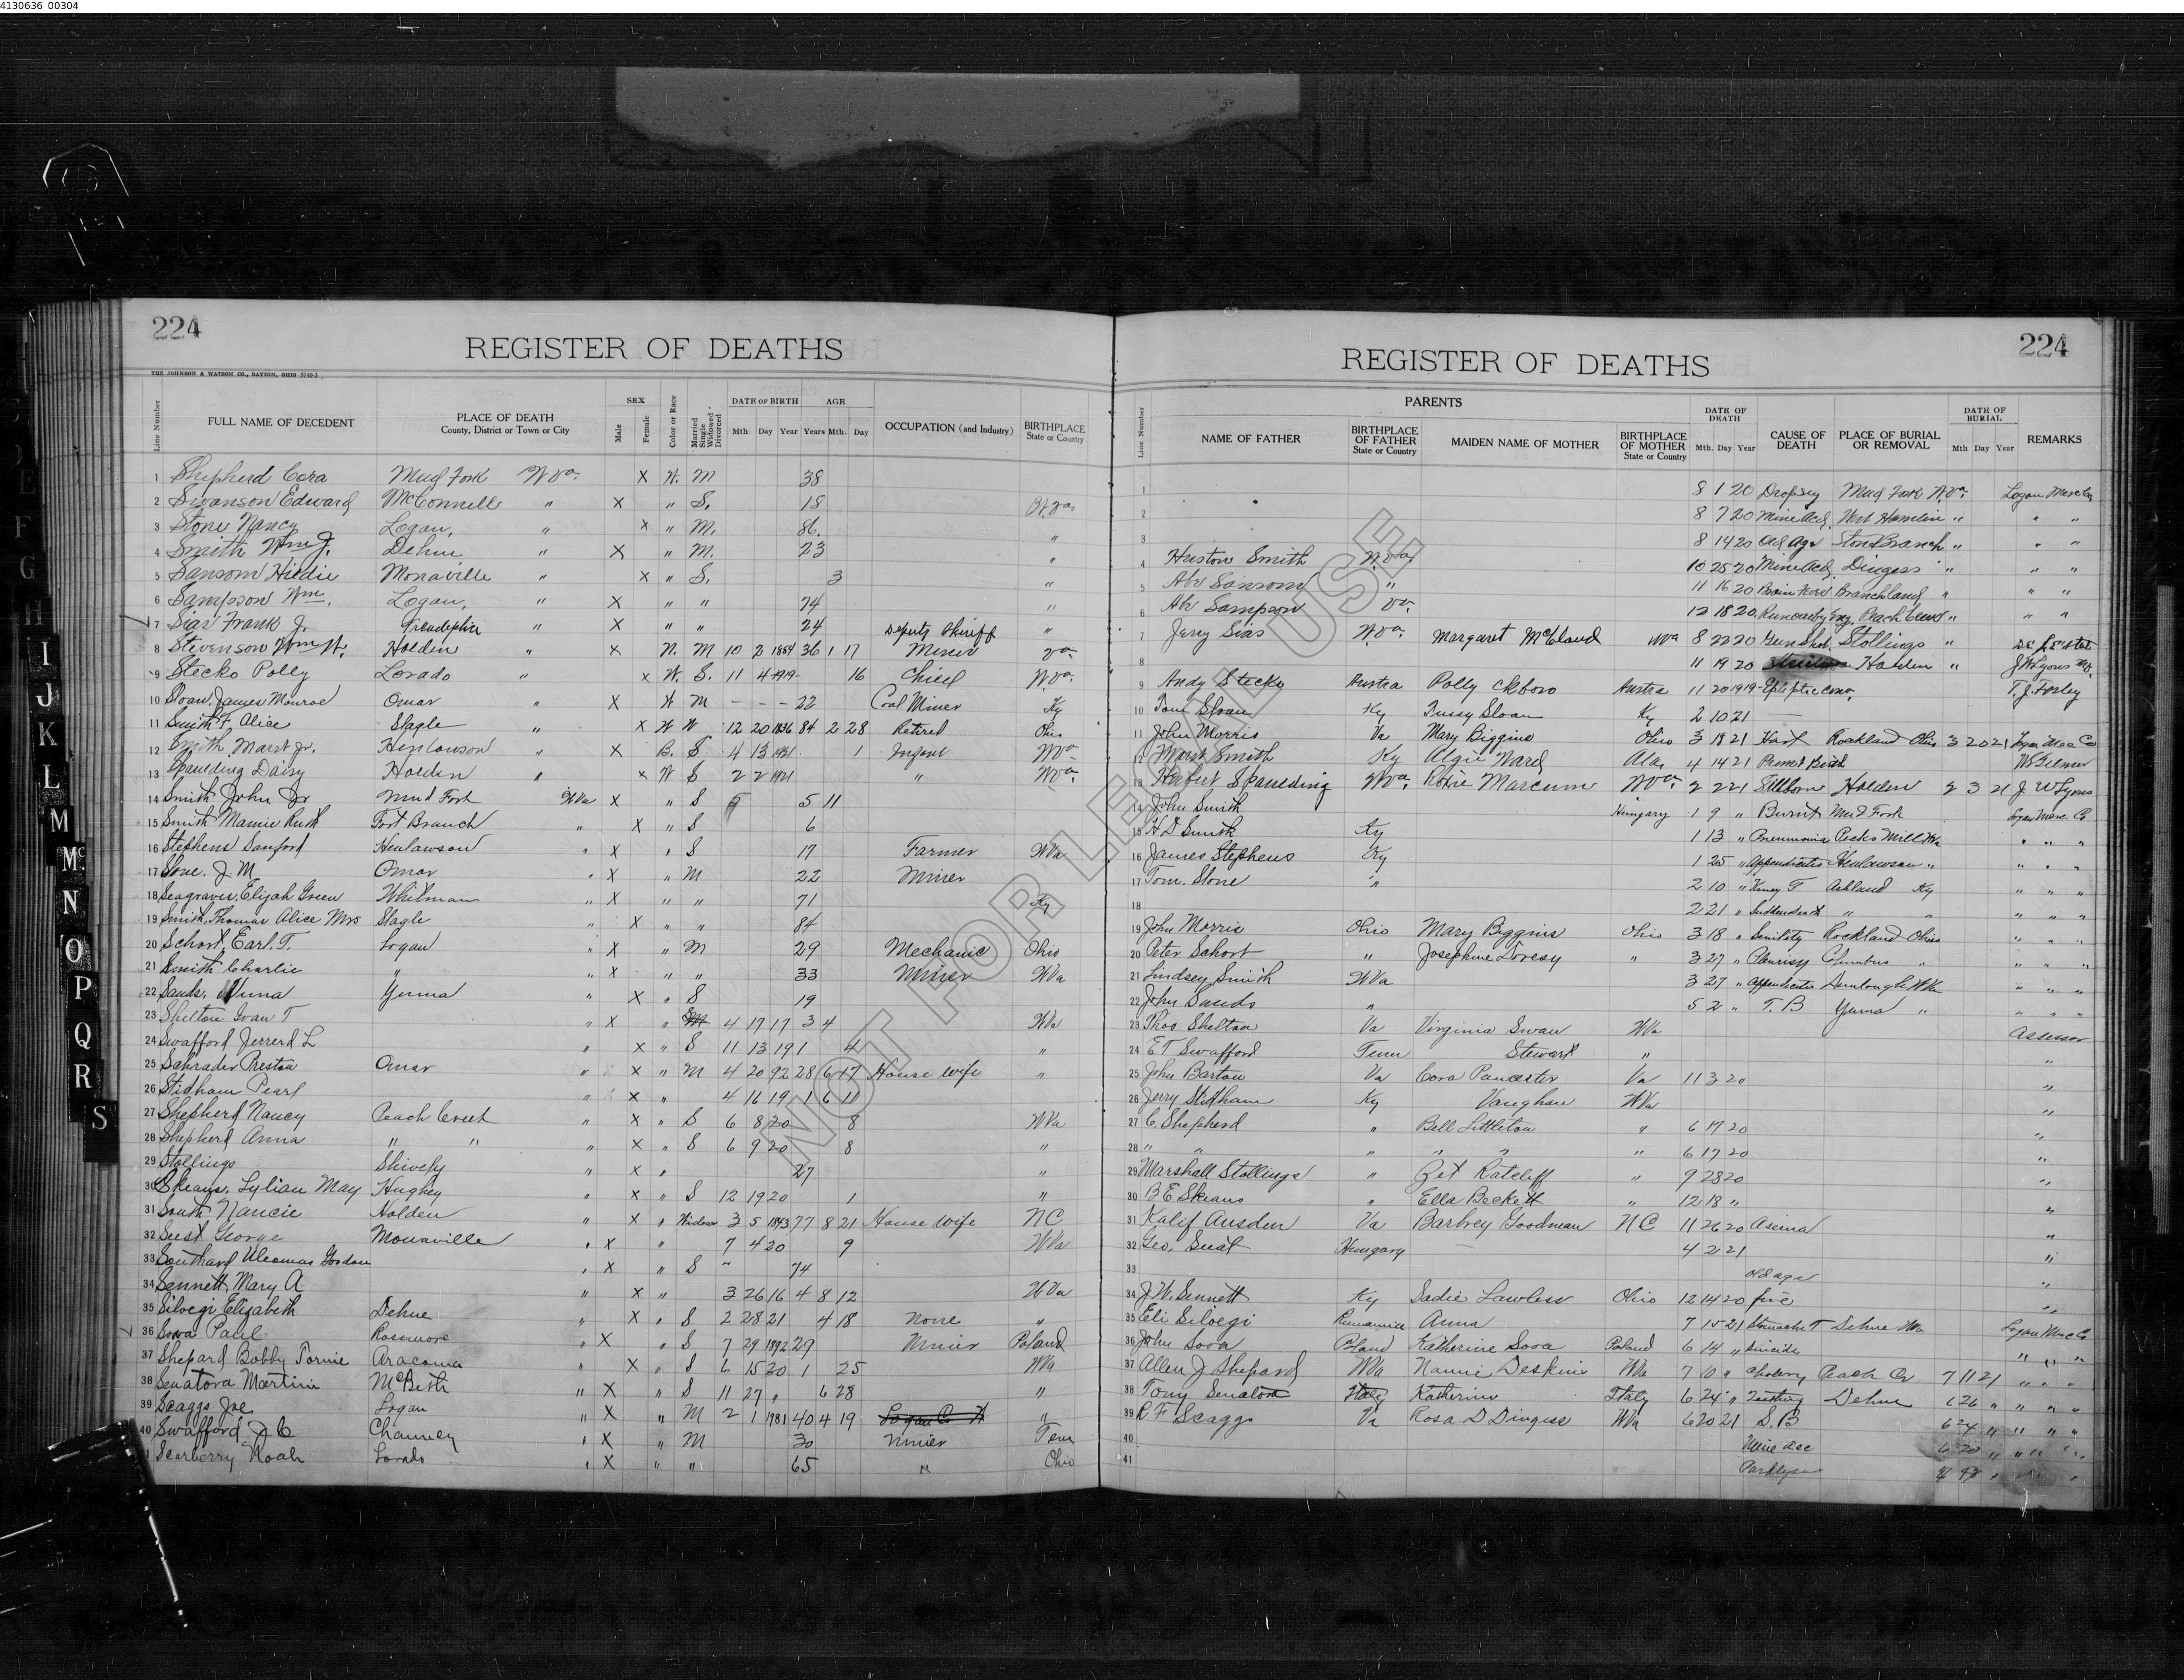 4130636_00304
224
REGISTER OF DEATHS
THE JOHNSON & WATSON CO., DAYTON, OHIO
Line Number FULL NAME OF DECEDENT PLACE OF DEATH County, District or Town or City SEX Male Female Color or Race Married Single Widowed Divorced DATE OF BIRTH Mth Day Year AGE Years Mth. Day OCCUPATION (and Industry) BIRTHPLACE State or Country
1 Shepherd Cora Mud Fork W Va. X W. M 38
2 Swanson Edward McConnell " X " S. 18 W.Va.
3 Stone Nancy Logan, " X " M. 86. "
4 Smith Wm J. Dehue " X " M. 23 "
5 Sansom Hildie Monaville " X " S. 3 "
6 Sampson Wm. Logan, " X " " 74 "
7 Sias Frank J. " X " " 24 Deputy Sheriff "
8 Stevenson Wm H. Holden " X N. M 10 2 1884 36 1 17 Miner Va.
9 Stecko Polly Lorado " X W. S. 11 4 1919 16 Child W.Va.
10 Sloan, James Monroe Omar " X W M - - - 22 Coal Miner Ky
11 Smith F. Alice Slagle " X W W 12 20 1836 84 2 28 Retired Ohio
12 Smith Marst Jr. Henlawson " X B. S 4 13 1921 1 Infant W Va
13 Spaulding Daisy Holden " X W S 2 2 1921 " W Va.
14 Smith John Jr Mud Fork W Va X " S 5 11
15 Smith Mamie Ruth Fort Branch " X " S 6
16 Stephens Sanford Henlawson " X " S 17 Farmer W Va
17 Stone. J. M Omar " X " M 22 Miner
18 Seagraves, Elijah Green Whitman " X " " 71 Ky
19 Smith, Thomas Alice Mrs Slagle " X " " 84
20 Schort, Earl. T. Logan " X " M 29 Mechanic Ohio
21 Smith Charlie " " X " " 33 Miner W Va
22 Sands, Yuma " X " S 19
23 Shelton Ivan T " X " 4 17 17 3 4 W Va
24 Swafford Jerrerd L " X " S 11 13 19 1 4 "
25 Schrader Preston Omar " X " M 4 20 92 28 6 17 House wife "
26 Stidham Pearl " X " 4 16 19 1 6 11
27 Shepherd Nancy Peach Creek " X " S 6 8 20 8 W Va
28 Shepherd Anna " " " X " S 6 9 20 8 "
29 Stollings Shively " X " 27 "
30 Skeans, Lylian May Hughey " X " S 12 19 20 1 "
31 South Nancie Holden " X " Widow 3 5 1843 77 8 21 House Wife N C
32 Sust George Monaville " X " 7 4 20 9 W Va
33 Southard Gordon " X " S " 74
34 Sennett, Mary A " X " 3 26 16 4 8 12 W Va
35 Siloegi Elizabeth Dehue " X " S 2 28 21 4 18 None "
36 Sova Paul Rossmore " X " S 7 29 1892 29 Miner Poland
37 Shepard Bobby Aracoma " X " S 6 15 20 1 25 W Va
38 Senatora Martini McBeth " X " S 11 27 " 6 28 "
39 Scaggs Joe Logan " X " M 2 1 1981 40 4 19 "
40 Swafford J C Chauncey " X " M 30 Miner Tenn
Scarberry Noah Lorado " X " " 65 " Ohio
224
REGISTER OF DEATHS
Line Number PARENTS NAME OF FATHER BIRTHPLACE OF FATHER State or Country MAIDEN NAME OF MOTHER BIRTHPLACE OF MOTHER State or Country DATE OF DEATH Mth. Day Year CAUSE OF DEATH PLACE OF BURIAL OR REMOVAL DATE OF BURIAL Mth Day Year REMARKS
1 8 1 20 Dropsey Mud Fork W.Va. Logan Merc Co
2 8 7 20 Mine Acd. West Hamlin " " "
3 8 14 20 Old Age Stone Branch " " "
4 Huston Smith W.Va. 10 25 20 Mine Acd. Dingess " " "
5 Abv Sansom " 11 16 20 Brain Fever Branchland " " "
6 Abv Sampson Va. 12 18 20 Run over by Eng. Peach Creek " " "
7 Jerey Sias W.Va. Margaret McCloud W Va 8 22 20 Gun Shot Stollings "
8 11 19 20 Holden " J.W. Lyons
9 Andy Stecko Austra Polly Austra 11 20 1919 Epleptic conv. T. J. Farley
10 Tom Sloan Ky Tussy Sloan Ky 2 10 21
11 John Morris Va Mary Biggins Ohio 3 18 21 Heart Rockland Ohio 3 20 21 Logan Merc Co
12 Marst Smith Ky Algie Ward Ala. 4 14 21 Premet Birth
13 Herbert Spaulding W Va. Roxie Marcum W Va. 2 2 21 Stillborn Holden 2 3 21 J W Lyons
14 John Smith Hungary 1 9 " Burnt Mud Fork Logan Merc Co
15 H. D Smith Ky 1 13 " Pneumonia Pecks Mill W Va " " "
16 James Stephens Ky 1 25 " Appendicitis Henlawson " " " "
17 Tom. Stone " 2 10 " Ashland Ky " " "
18 2 21 " Sudden death " " " " "
19 John Morris Ohio Mary Biggins Ohio 3 18 " Senility Rockland Ohio " " "
20 Peter Schort " Josephine Loresy " 3 27 " Pleurisy Columbus " " " "
21 Lindsey Smith W Va 3 27 " Appendicitis W Va " " "
22 John Sands " 5 2 " T. B Yuma " " " "
23 Thos Shelton Va Virginia Swan W Va Assessor
24 E T Swafford Tenn Stewart " "
25 John Barton Va Cora Pancaster Va 11 3 20 "
26 Jerry Stidham Ky Vaughan W Va "
27 C. Shepherd " Bell Littleton " 6 17 20 "
28 " " " " " " 6 17 20 "
29 Marshall Stollings " Get Ratcliff " 9 28 20 "
30 B E Skeans " Ella Beckett " 12 18 " "
31 Kalif Ausden Va Barbrey Goodman N C 11 26 20 "
32 Geo. Sust Hungary 4 2 21 "
33 old age "
34 J. W. Sennett Ky Sadie Lawless Ohio 12 14 20 fire "
35 Eli Siloegi Anna 7 15 21 Stomache T Dehue W Va Logan Merc Co
36 John Sova Poland Katherine Sova Poland 6 14 " Suicide " " "
37 Allen J Shepard W Va Nannie Deskins W Va 7 10 " Cholery Peach Cr 7 11 21 " " "
38 Tony Senatora Italy Katherine Italy 6 24 " Teething Dehue 6 26 " " " "
39 R F Scaggs Va Rosa D Dingess W Va 6 20 21 S. B 6 24 " " " "
40 Mine Acc
41 Parklyse
I
J
K
L
M
Mc
N
O
P
Q
R
S
NOT FOR LEGAL USE